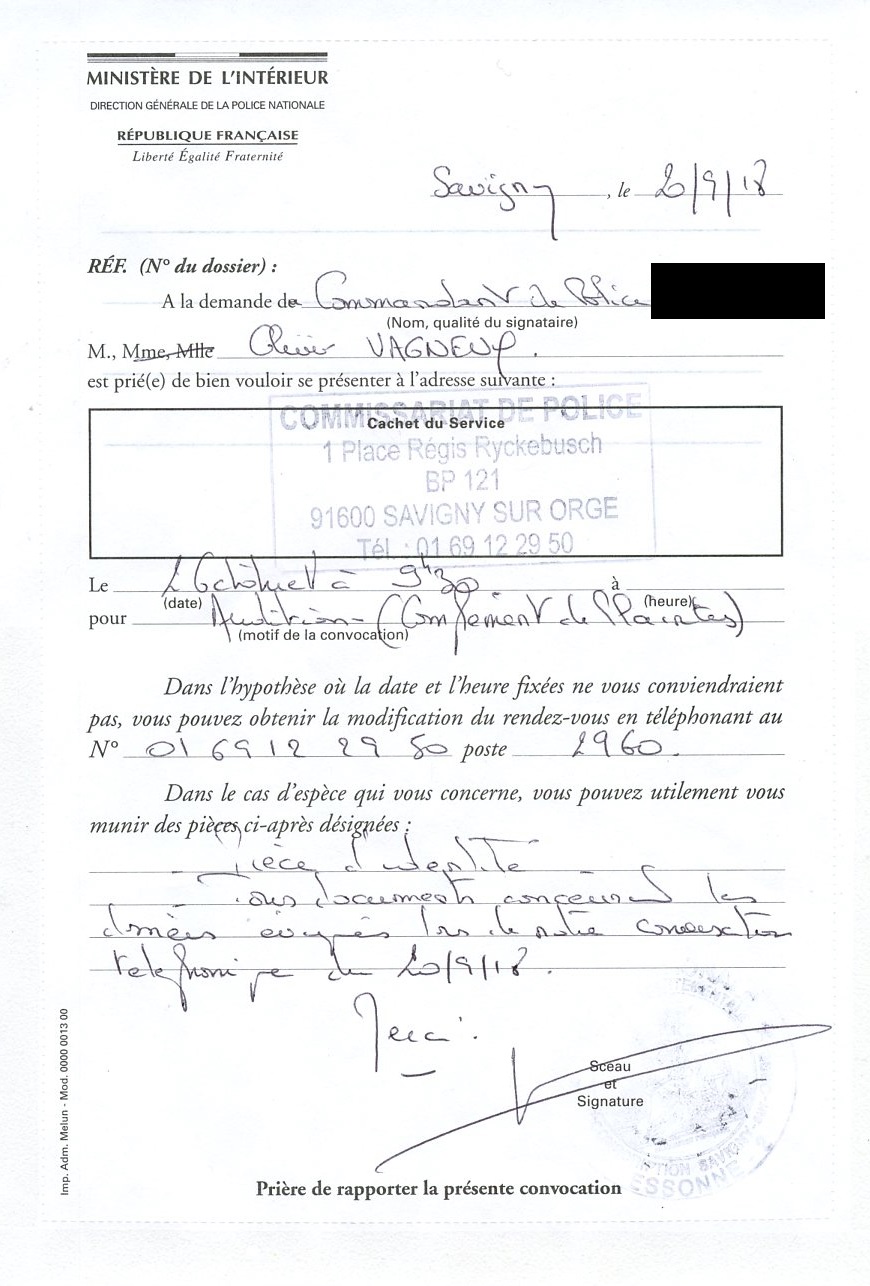 MINISTÈRE DE L'INTÉRIEUR
DIRECTION GÉNÉRALE DE LA POLICE NATIONALE
RÉPUBLIQUE FRANÇAISE
Liberté Égalité Fraternité
Savigny, le 20/9/18
RÉF. (N° du dossier) :
A la demande de Commandant de Police
(Nom, qualité du signataire)
M., Mme, Mlle Olivier VAGNEUX.
est prié(e) de bien vouloir se présenter à l'adresse suivante :
COMMISSARIAT DE POLICE
Cachet du Service
1 Place Régis Ryckebusch
BP 121
91600 SAVIGNY SUR ORGE
Tél : 01 69 12 29 50
Le 2 Octobre à 9h30 à
(date) (heure)
pour Audition - (Complément de Plaintes)
(motif de la convocation)
Dans l'hypothèse où la date et l'heure fixées ne vous conviendraient
pas, vous pouvez obtenir la modification du rendez-vous en téléphonant au
N° 01 69 12 29 50 poste 2960.
Dans le cas d'espèce qui vous concerne, vous pouvez utilement vous
munir des pièces ci-après désignées :
- Pièce d'identité
- Tous documents concernant les
données évoquées lors de notre conversation
telephonique du 20/9/18.
Merci.
Sceau
et
Signature
ESSONNE
Prière de rapporter la présente convocation
Imp. Adm. Melun - Mod. 0000 0013 00